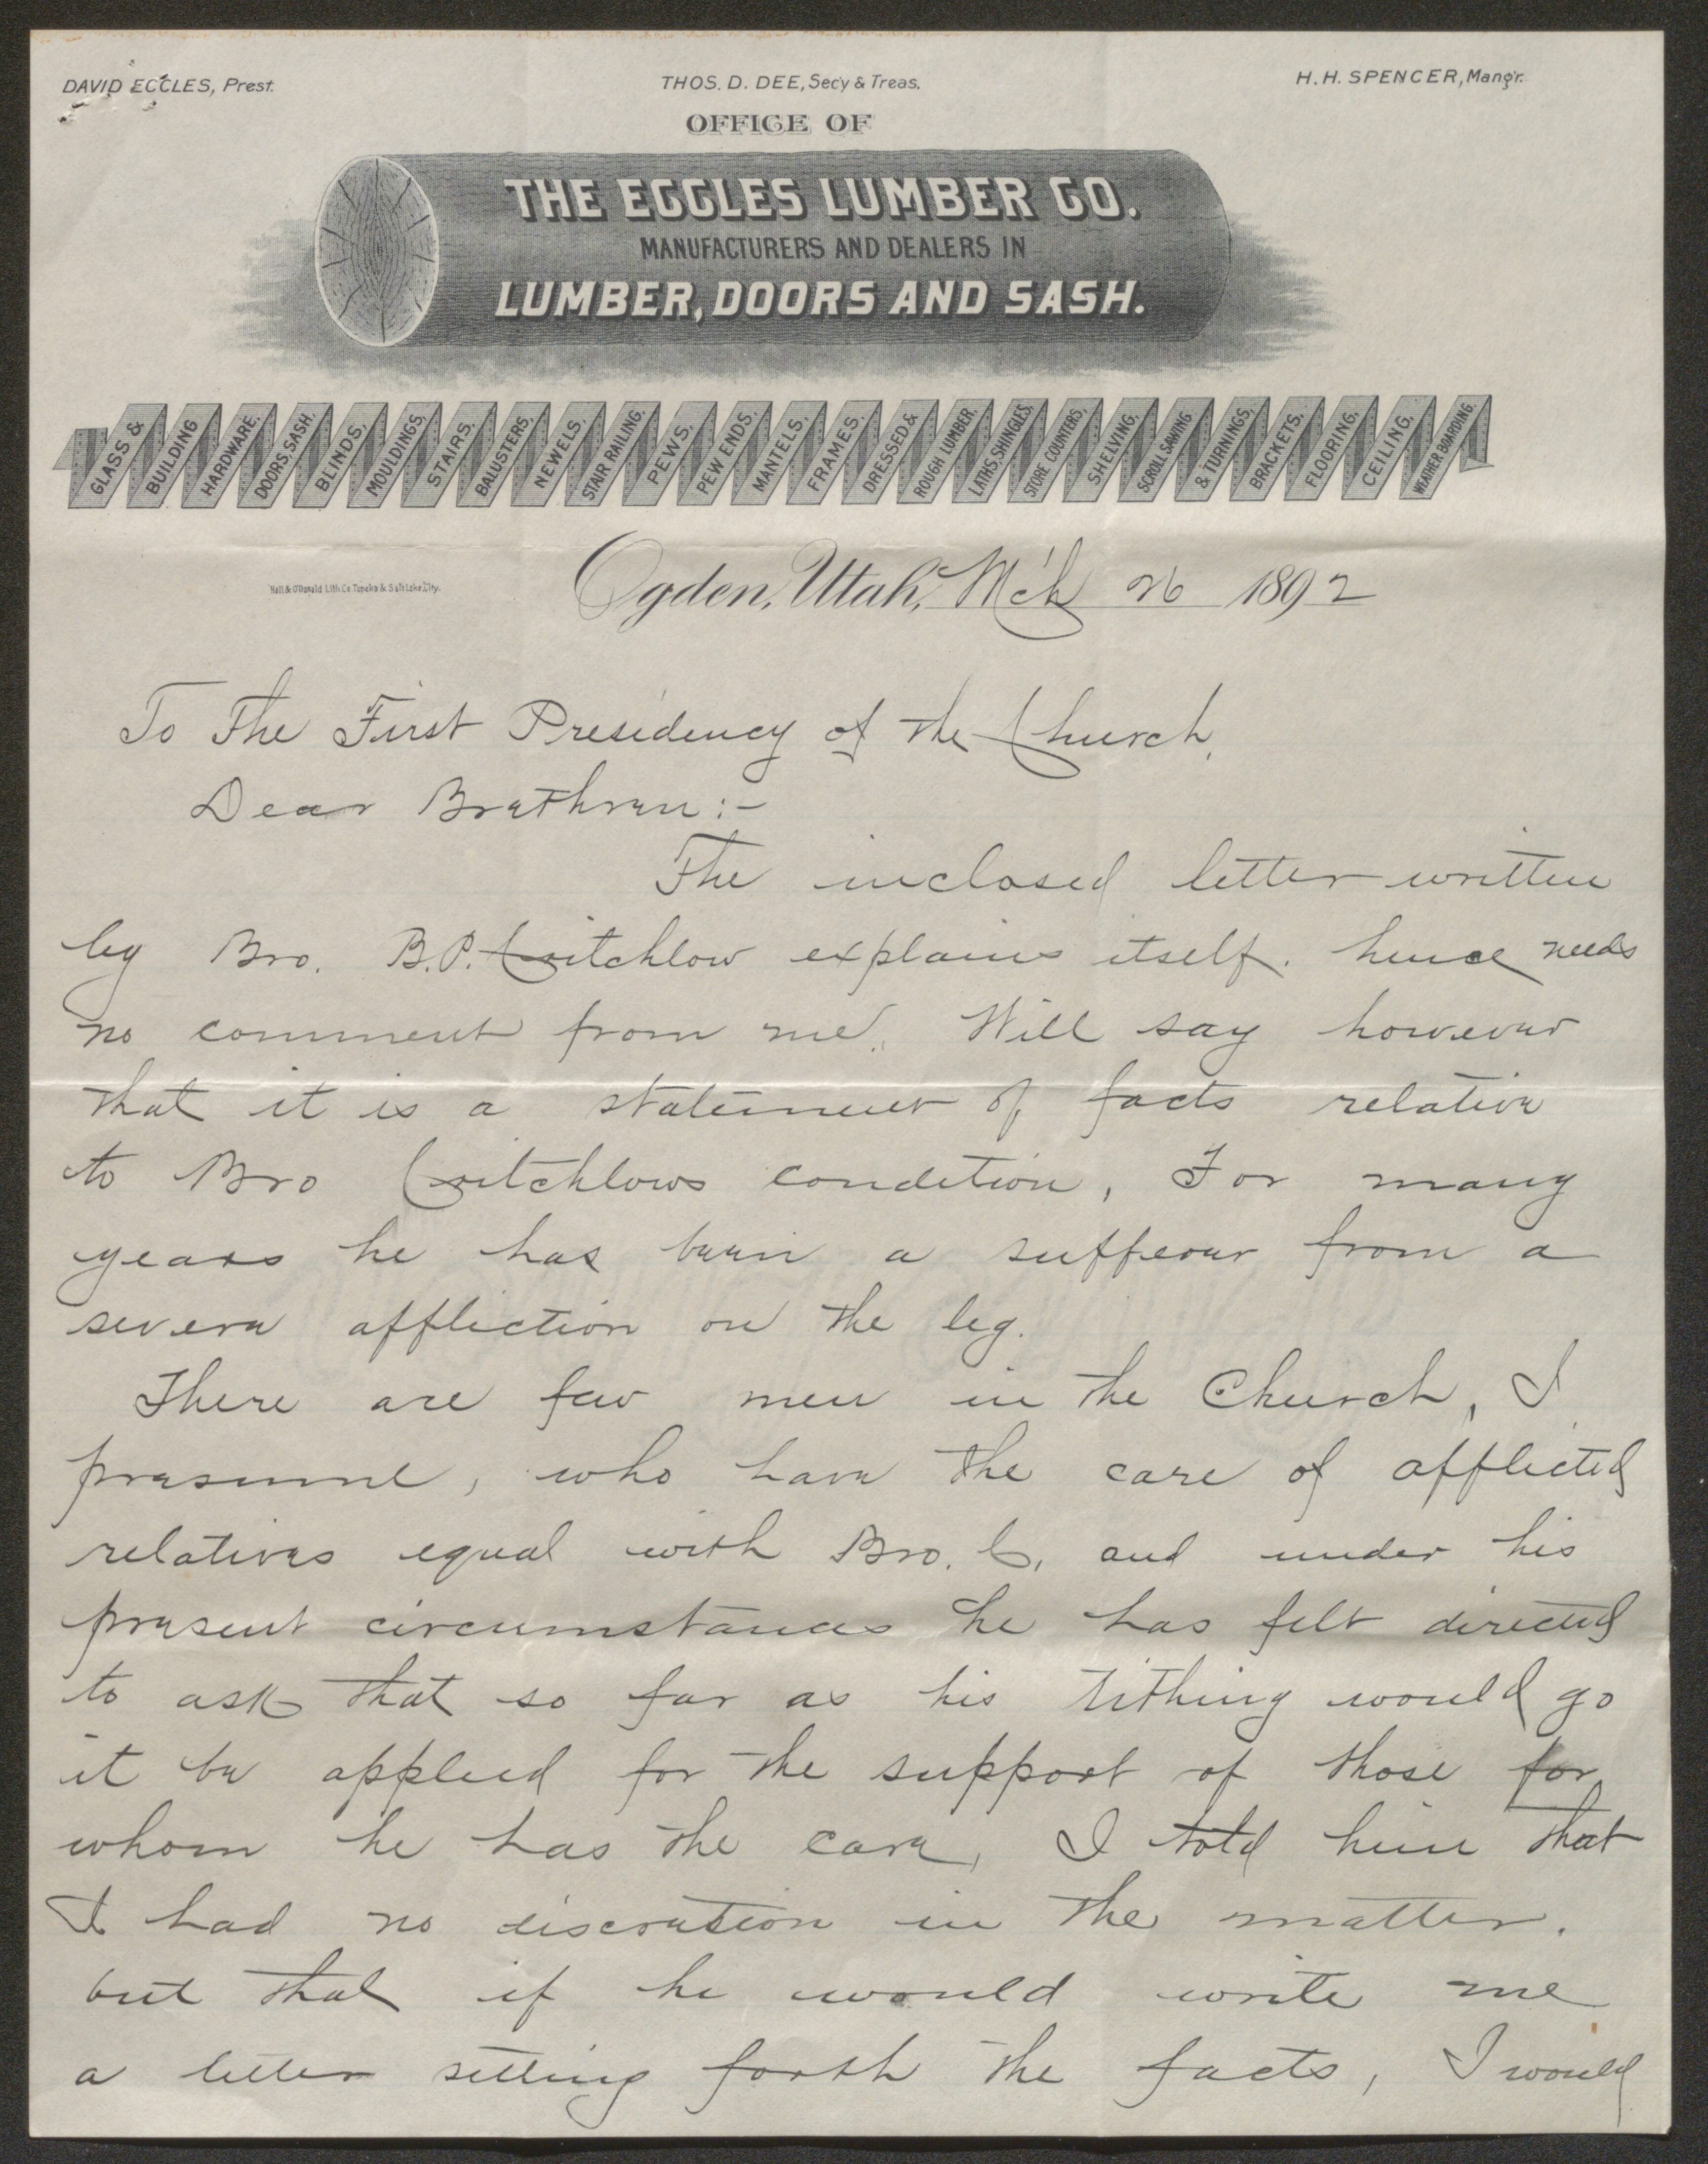 DAVID ECCLES, Prest.
THOS. D. DEE, Secy & Treas.
H. H. SPENCER, Mang'r.
OFFICE OF
THE ECCLES LUMBER CO.
MANUFACTURERS AND DEALERS IN
LUMBER, DOORS AND SASH.
GLASS & BUILDING HARDWARE, DOORS, SASH, BLINDS, MOULDINGS, STAIRS, BALUSTERS, NEWELS, STAIR RAILING, PEWS, PEW ENDS, MANTELS, FRAMES, DRESSED & ROUGH LUMBER, LATHS, SHINGLES, STORE COUNTERS, SHELVING, SCROLL SAWING & TURNINGS, BRACKETS, FLOORING, CEILING, WEATHER BOARDING.
Hall & O'Donald Lith. Co. Topeka & Salt Lake City.
Ogden, Utah, Mch 26 1892
To The First Presidency of the Church,
Dear Brethren:-
The inclosed letter written
by Bro. B.P. Critchlow explains itself. hence needs
no comment from me. Will say however
that it is a statement of facts relative
to Bro Critchlows condition, For many
years he has been a sufferer from a
severe affliction on the leg.
There are few men in the Church, I
presume, who have the care of afflicted
relatives equal with Bro. C, and under his
present circumstances he has felt directed
to ask that so far as his tithing would go
it be applied for the support of those for
whom he has the care, I told him that
I had no discretion in the matter.
but that if he would write me
a letter setting forth the facts, I would